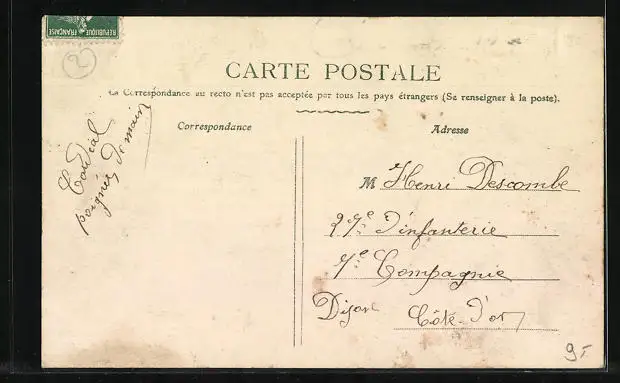 REPUBLIQUE FRANÇAISE
2
CARTE POSTALE
La Correspondance au recto n'est pas acceptée par tous les pays étrangers (Se renseigner à la poste).
Correspondance
Cordial
poignée de main
Adresse
M Henri Descombe
27e d'infanterie
7e Compagnie
Dijon Côte-d'or
9-